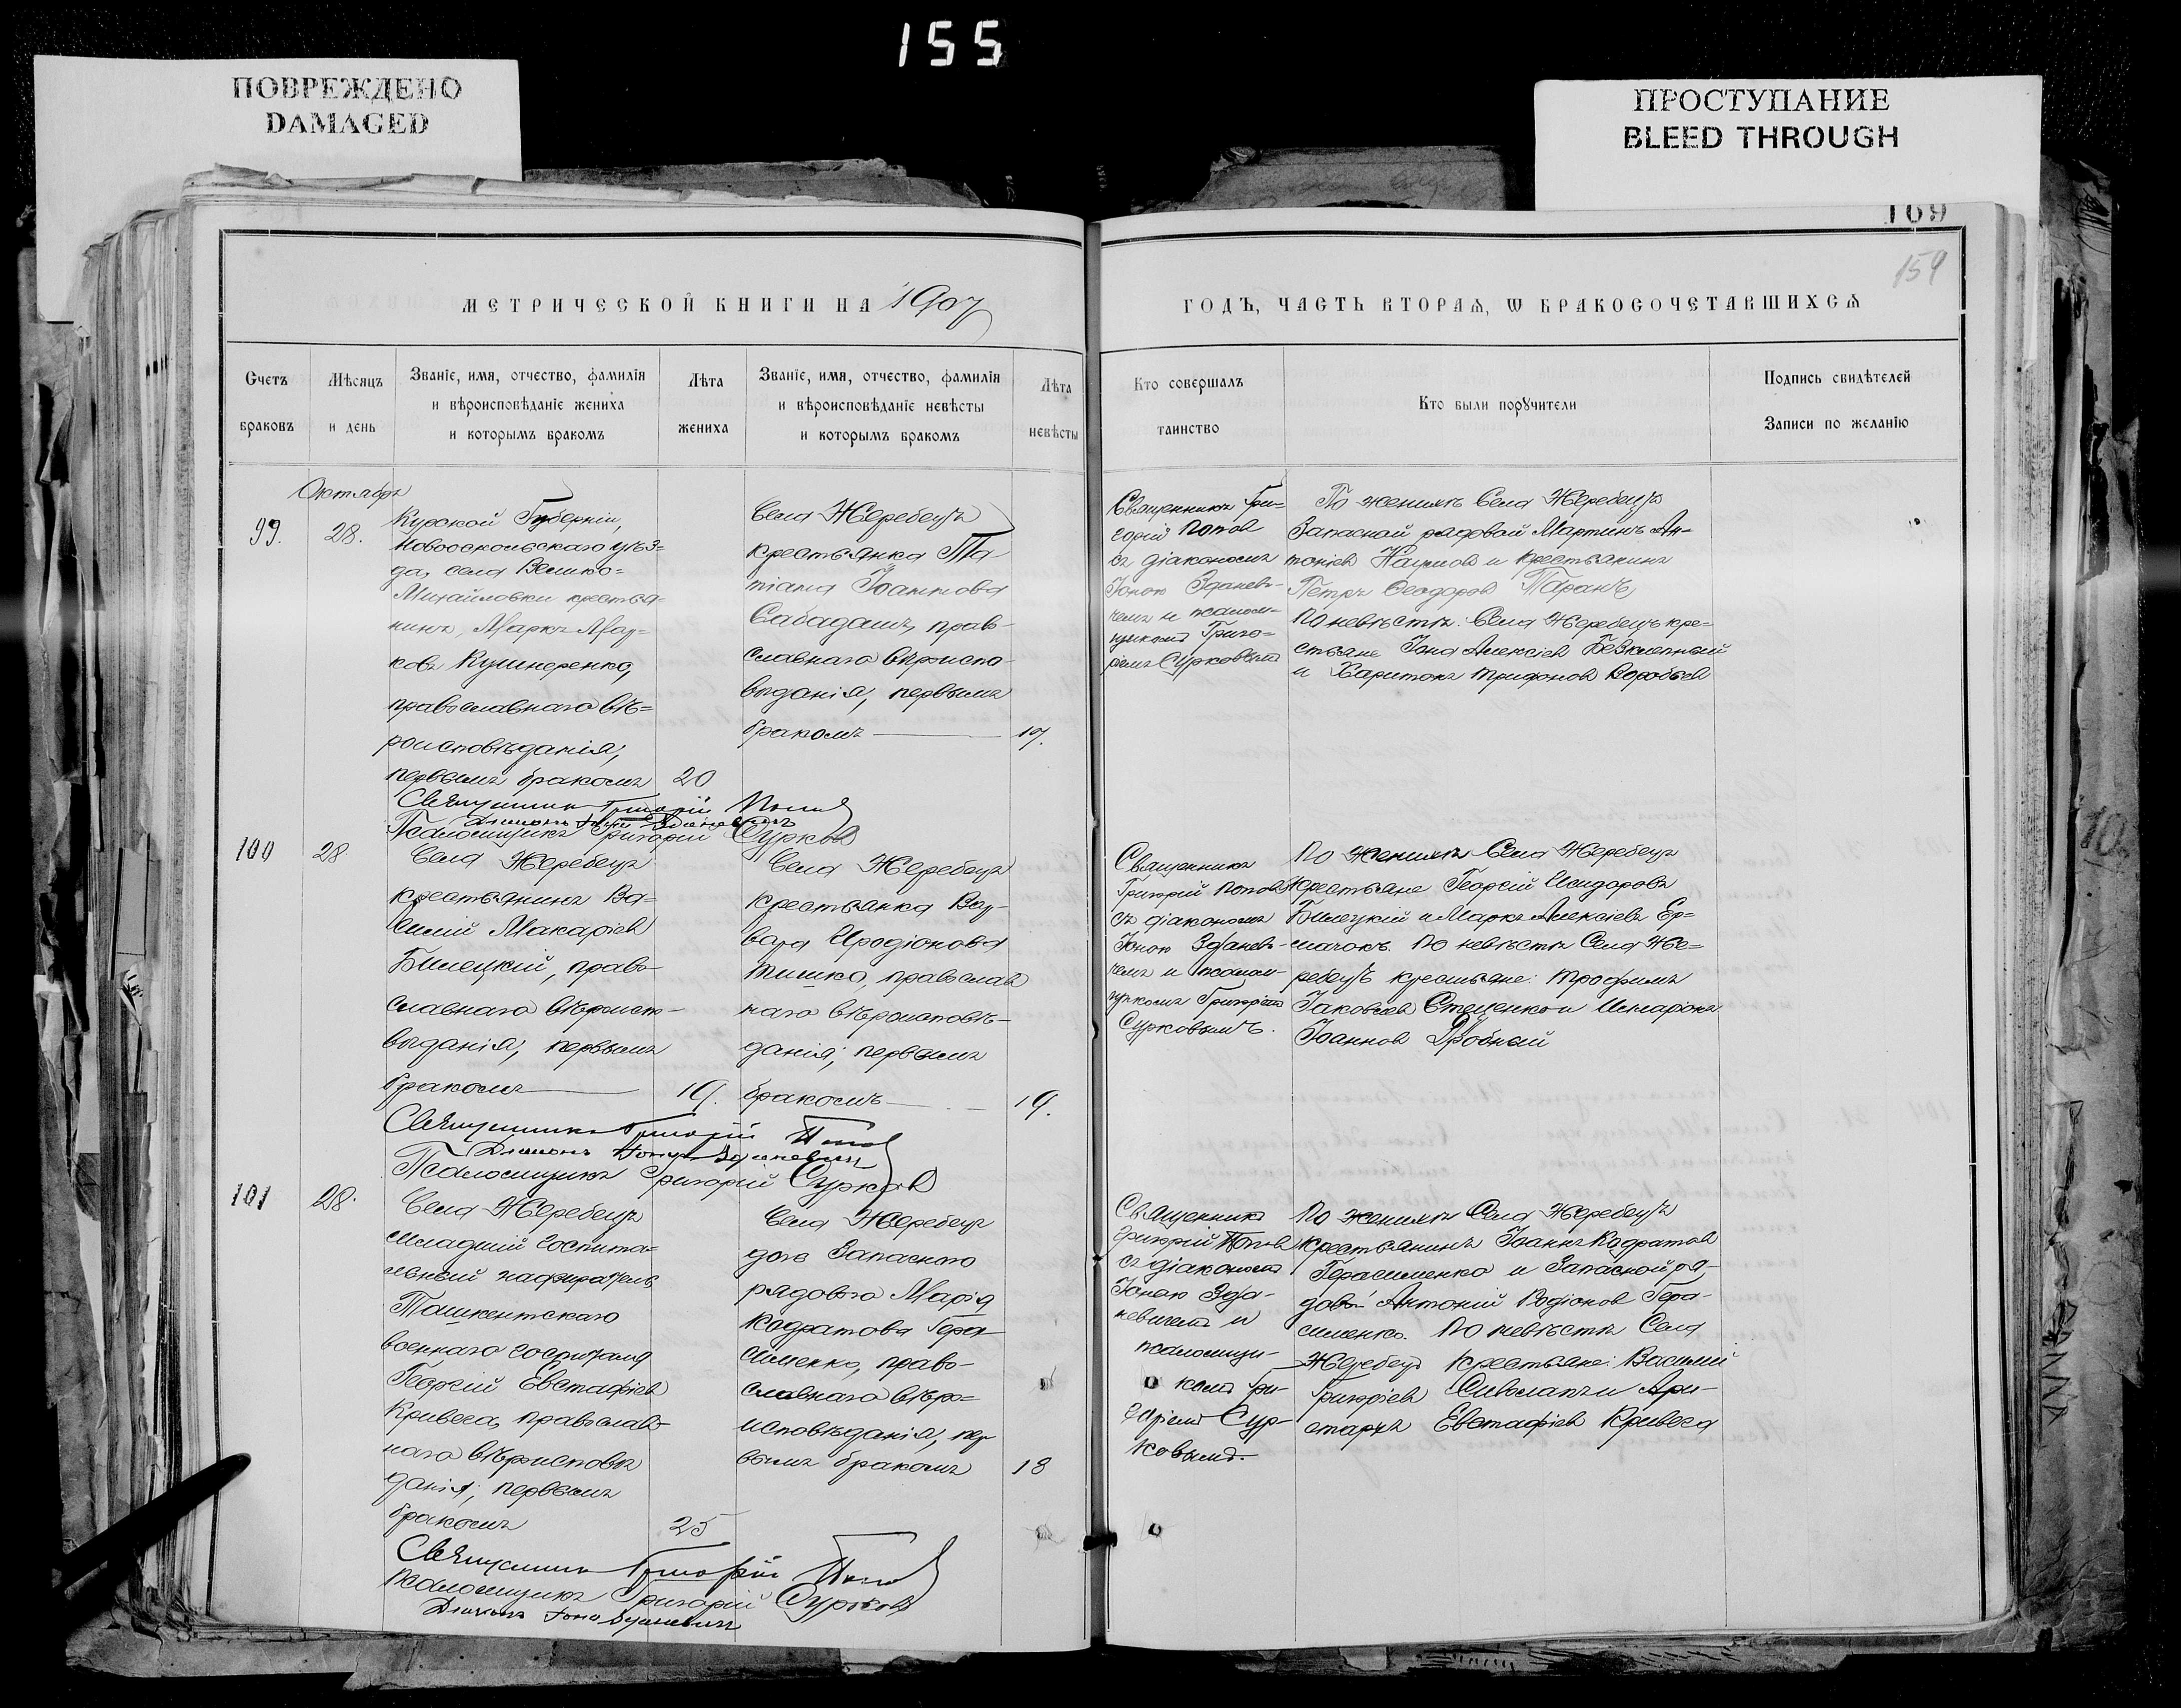 155
ПОВРЕЖДЕНО
DAMAGED
ПРОСТУПАНИЕ
BLEED THROUGH
169
159
МЕТРИЧЕСКОЙ КНИГИ НА 1907
ГОДЪ, ЧАСТЬ ВТОРАѦ, Ѡ БРАКОСОЧЕТАВШИХСѦ
Счетъ
браковъ
Мѣсяцъ
и день
Званіе, имя, отчество, фамилія
и вѣроисповѣданіе жениха
и которымъ бракомъ
Лѣта
жениха
Званіе, имя, отчество, фамилія
и вѣроисповѣданіе невѣсты
и которымъ бракомъ
Лѣта
невѣсты
Кто совершалъ
таинство
Кто были порꙋчители
Подпись свидѣтелей
Записи по желанію
Октябрь
99.
28.
Курской Губерніи,
Новооскольскаго уѣз=
да, села Велико=
Михайловки крестья=
нинъ, Маркъ Мар=
ковъ Кушнеренко,
православнаго вѣ=
роисповѣданія,
первымъ бракомъ
20
Села Жеребецъ
крестьянка Та-
тіана Іоаннова
Сабадашъ, прав-
славнаго вѣроиспо-
вѣданія, первымъ
бракомъ
Священникъ Гри=
горій Попов
съ діакономъ
Іоною Зданев-
чемъ и псалом=
щикомъ Григо=
ріемъ Сурковымъ
По женихѣ Села Жеребецъ
Запасной рядовой Мартинъ Ан=
тоніев Наумов и крестьянинъ
Петръ Ѳеодоров Таранъ
По невѣстѣ. Села Жеребецъ кре=
стьяне Іона Алексіев
и Харитонъ Трифонов Воробьев
Священникъ Григорій Попов
Діаконъ Іона Зданевичъ
Псаломщикъ Григорій Сурков
100
28
Села Жеребецъ
крестьянинъ Ва=
силій Макаріев
Билецкій, право-
славнаго вѣроиспо-
вѣданія, первымъ
бракомъ
19.
Села Жеребецъ
крестьянка Вар-
вара Иродіонова
Тишко, православ
наго вѣроисповѣ-
данія, первымъ
бракомъ
19.
Священникъ
Григорій Попов
съ діакономъ
Іоною Зданев-
чемъ и псалом-
щикомъ Григоріем
Сурковымъ.
По женихѣ Села Жеребецъ
крестьяне Георгій Исидоровъ
Билецкій и Маркъ Алексіевъ Ер=
мачокъ. По невѣстѣ Села Же=
ребецъ крестьяне: Трофимъ
Іаковлев Стеценко и Иларіонъ
Іоаннов Дробный
Священникъ Григорій Попов
Діаконъ Іона Зданевичъ
Псаломщикъ Григорій Сурков
101
28.
Села Жеребецъ
младшій госпита=
льный надзиратель
Ташкентскаго
военнаго госпиталя
Георгій Евстафіев
Кривега, православ-
наго вѣроисповѣ
данія, первымъ
бракомъ
25
Села Жеребецъ
дочь Запаснаго
рядового Марія
Кодратова Гера-
сименко, право-
славнаго вѣро=
исповѣданія, пер
вымъ бракомъ
18
Священникъ
Григорій Попов
съ діакономъ
Іоною Зда-
невичемъ и
псаломщи-
комъ Гри-
горіемъ Сур-
ковымъ.
По женихѣ Села Жеребецъ
крестьянинъ Іоаннъ Кодратов
Герасименко и Запасной ря-
довой Антоній Родіонов Гера-
сименко. По невѣстѣ Села
Жеребецъ крестьяне: Василій
Григоріев Сиволапъ и Ари-
стархъ Евстафіев Кривега
Священникъ Григорій Попов
Псаломщикъ Григорій Сурков
Діаконъ Іона Зданевичъ